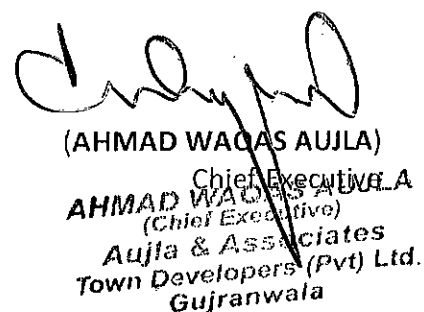 (AHMAD WAQAS AUJLA)
Chief Executive
AHMAD WAQAS AUJLA
(Chief Executive)
Aujla & Associates
Town Developers (Pvt) Ltd.
Gujranwala